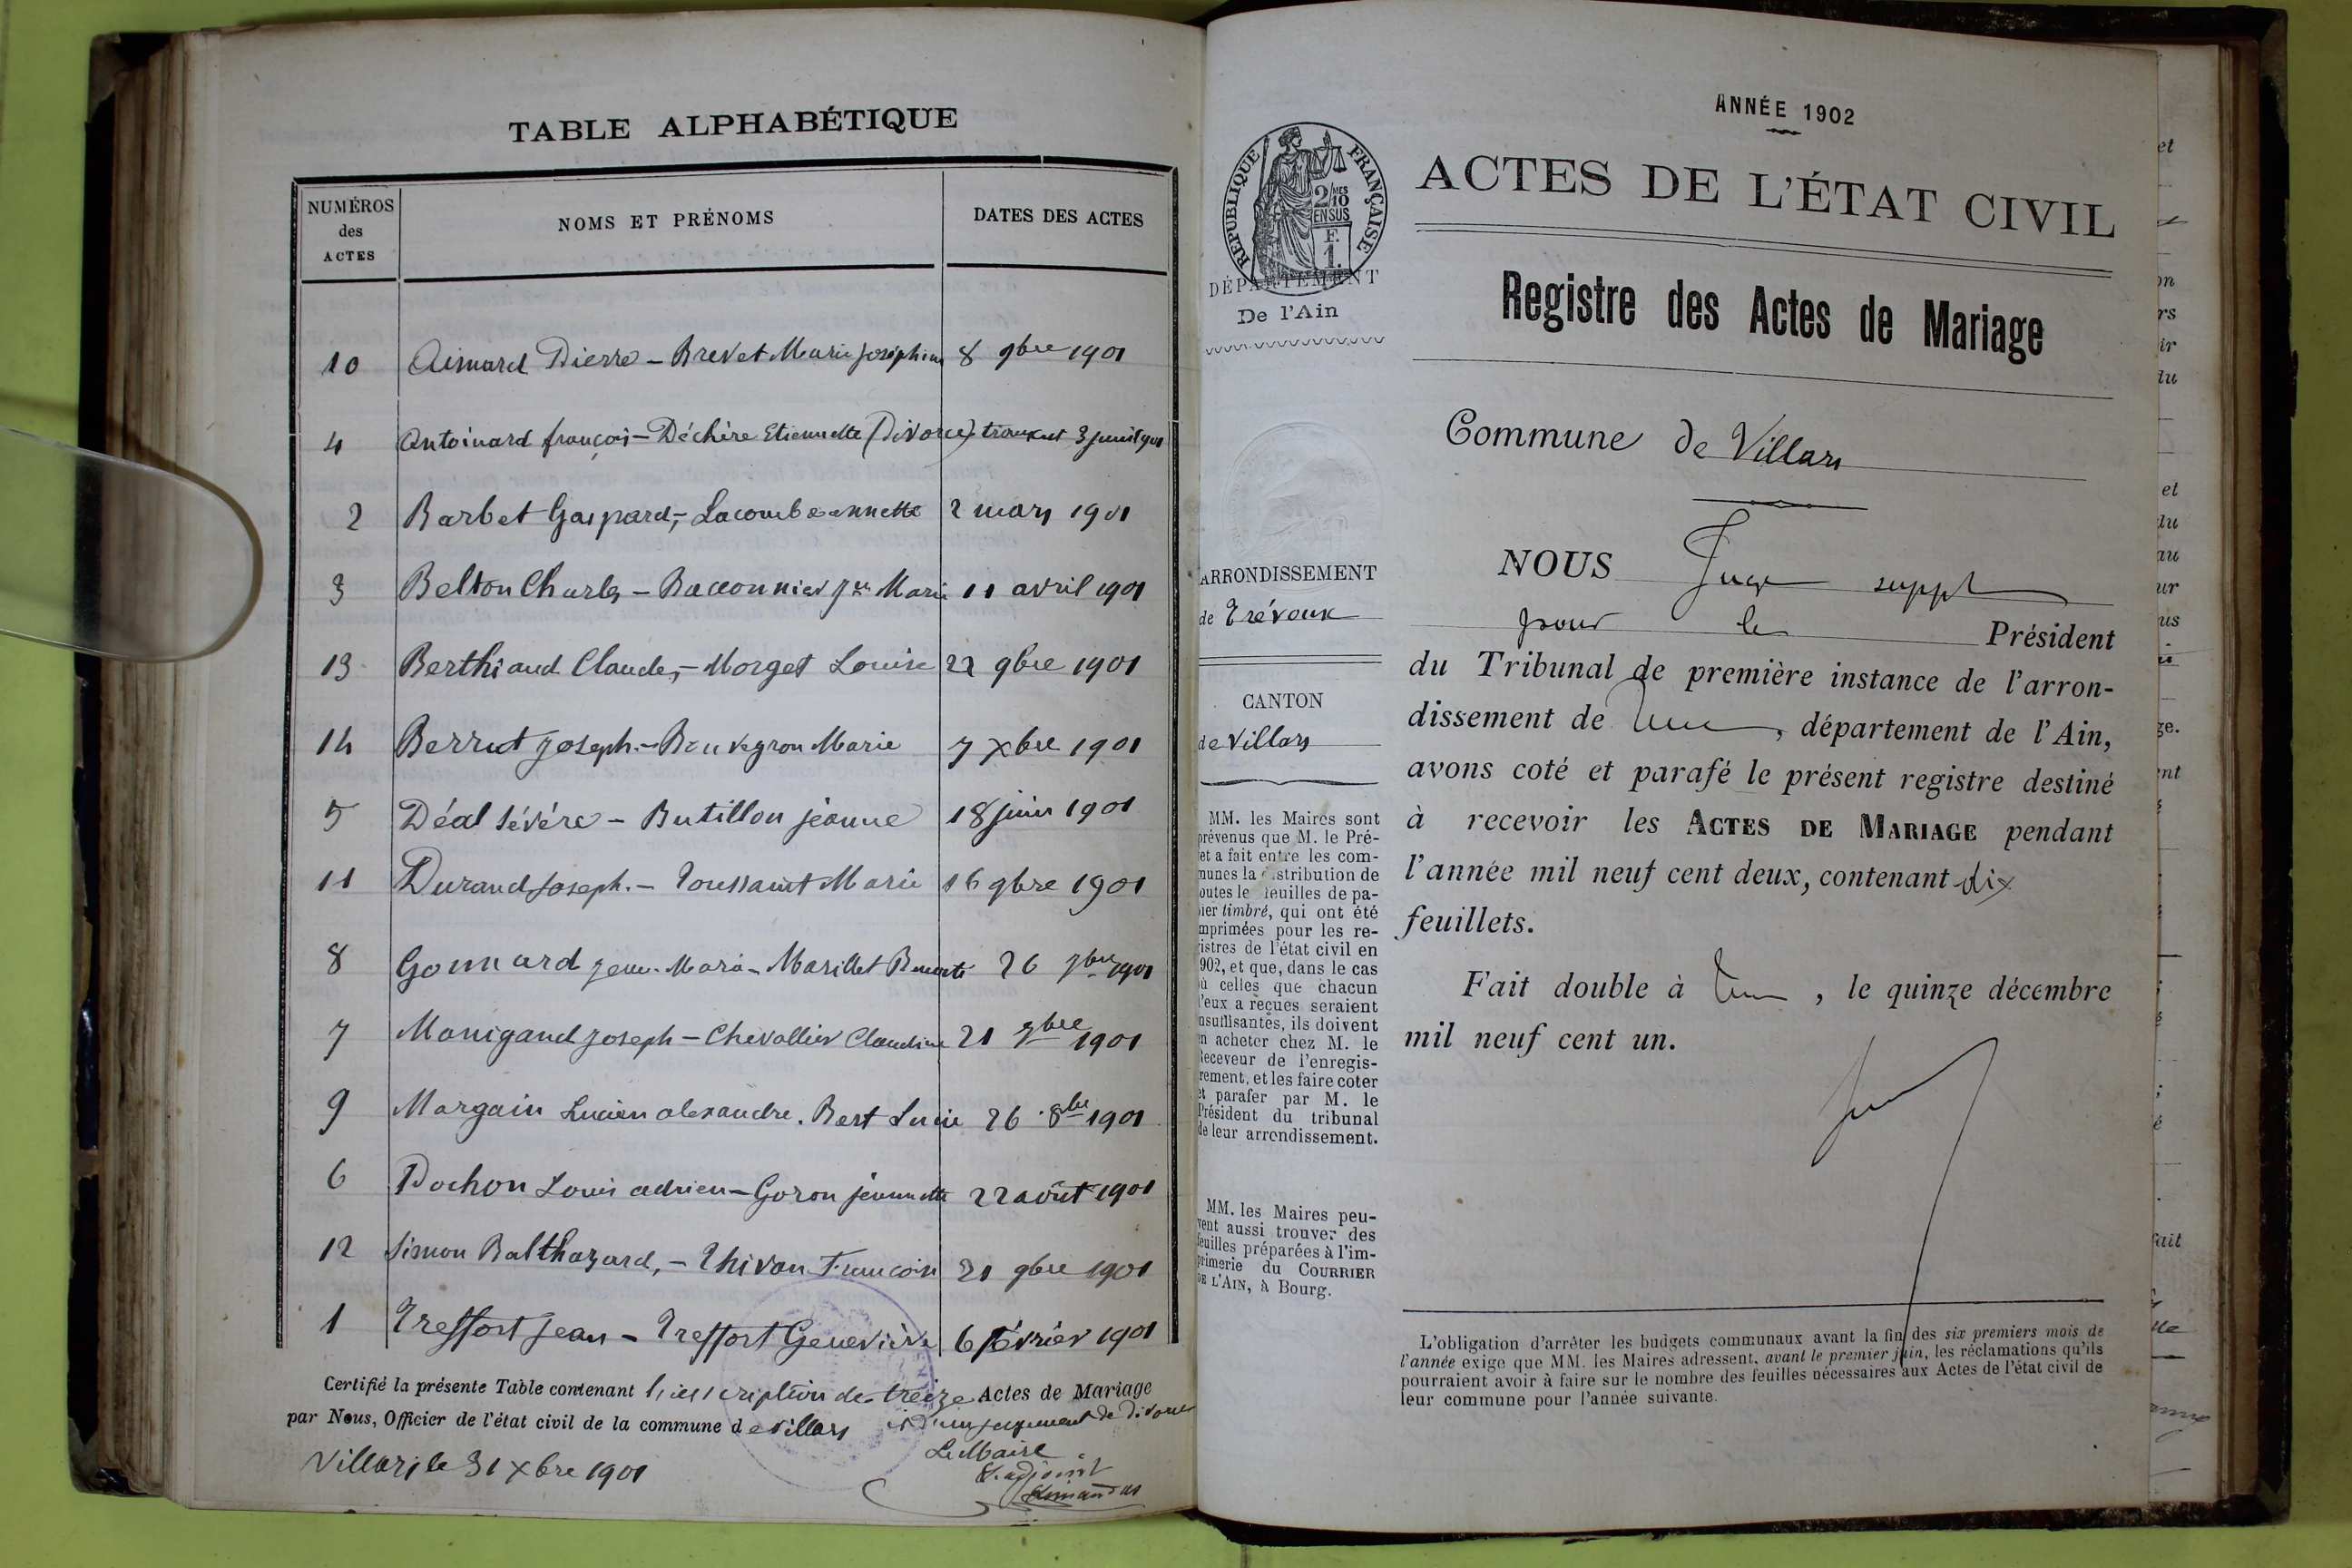 TABLE ALPHABÉTIQUE
NUMÉROS des ACTES NOMS ET PRÉNOMS DATES DES ACTES
10 Aimard Pierre - Brevet Marie Joséphine 8 9bre 1901
4 Antoinard françois - Déchère Etiennette (Divorce) transcut 3 juin 1901
2 Barbet Gaspard, - Lacombe annette 2 mars 1901
3 Belton Charles - Bacconnier Marie 11 avril 1901
13 Berthiaud Claude, - Morget Louise 22 9bre 1901
14 Berrut Joseph. - Bouvegron Marie 7 xbre 1901
5 Déal Sévère - Butillon jeanne 18 juin 1901
11 Durand Joseph. - Toussaint Marie 16 9bre 1901
8 Gonnard Jean-Marie - Marillet Benoite 26 7bre 1901
7 Manigand Joseph - Chevallier Claudine 21 7bre 1901
9 Margain Lucien alexandre. Bert Lucie 26 8bre 1901
6 Pochon Louis adrien - Goron jeannette 22 août 1901
12 Simon Balthazard, - Thivan Françoise 21 9bre 1901
1 Treffort Jean - Treffort Geneviève 6 février 1901
Certifié la présente Table contenant l'inscription de treize Actes de Mariage
et d'un jugement de divorce
par Nous, Officier de l'état civil de la commune de Villars
Le Maire
Villars le 31 xbre 1901
adjoint
ANNÉE 1902
ACTES DE L'ÉTAT CIVIL
RÉPUBLIQUE FRANÇAISE
2/10 MES
EN SUS
F.
1.
DÉPARTEMENT
De l'Ain
Registre des Actes de Mariage
Commune de Villars
ARRONDISSEMENT
de Trévoux
CANTON
de Villars
MM. les Maires sont
prévenus que M. le Pré-
et a fait entre les com-
munes la distribution de
outes le feuilles de pa-
ier timbré, qui ont été
mprimées pour les re-
istres de l'état civil en
902, et que, dans le cas
ù celles que chacun
l'eux a reçues seraient
nsuffisantes, ils doivent
n acheter chez M. le
Receveur de l'enregis-
rement, et les faire coter
et parafer par M. le
Président du tribunal
de leur arrondissement.
MM. les Maires peu-
vent aussi trouver des
feuilles préparées à l'im-
primerie du COURRIER
DE L'AIN, à Bourg.
NOUS Juge suppt
pour le Président
du Tribunal de première instance de l'arron-
dissement de , département de l'Ain,
avons coté et parafé le présent registre destiné
à recevoir les ACTES DE MARIAGE pendant
l'année mil neuf cent deux, contenant dix
feuillets.
Fait double à , le quinze décembre
mil neuf cent un.
L'obligation d'arrêter les budgets communaux avant la fin des six premiers mois de
l'année exige que MM. les Maires adressent, avant le premier juin, les réclamations qu'ils
pourraient avoir à faire sur le nombre des feuilles nécessaires aux Actes de l'état civil de
leur commune pour l'année suivante.